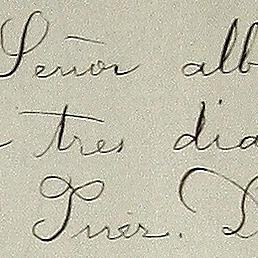 Señor alb
tres dia
Pner. D